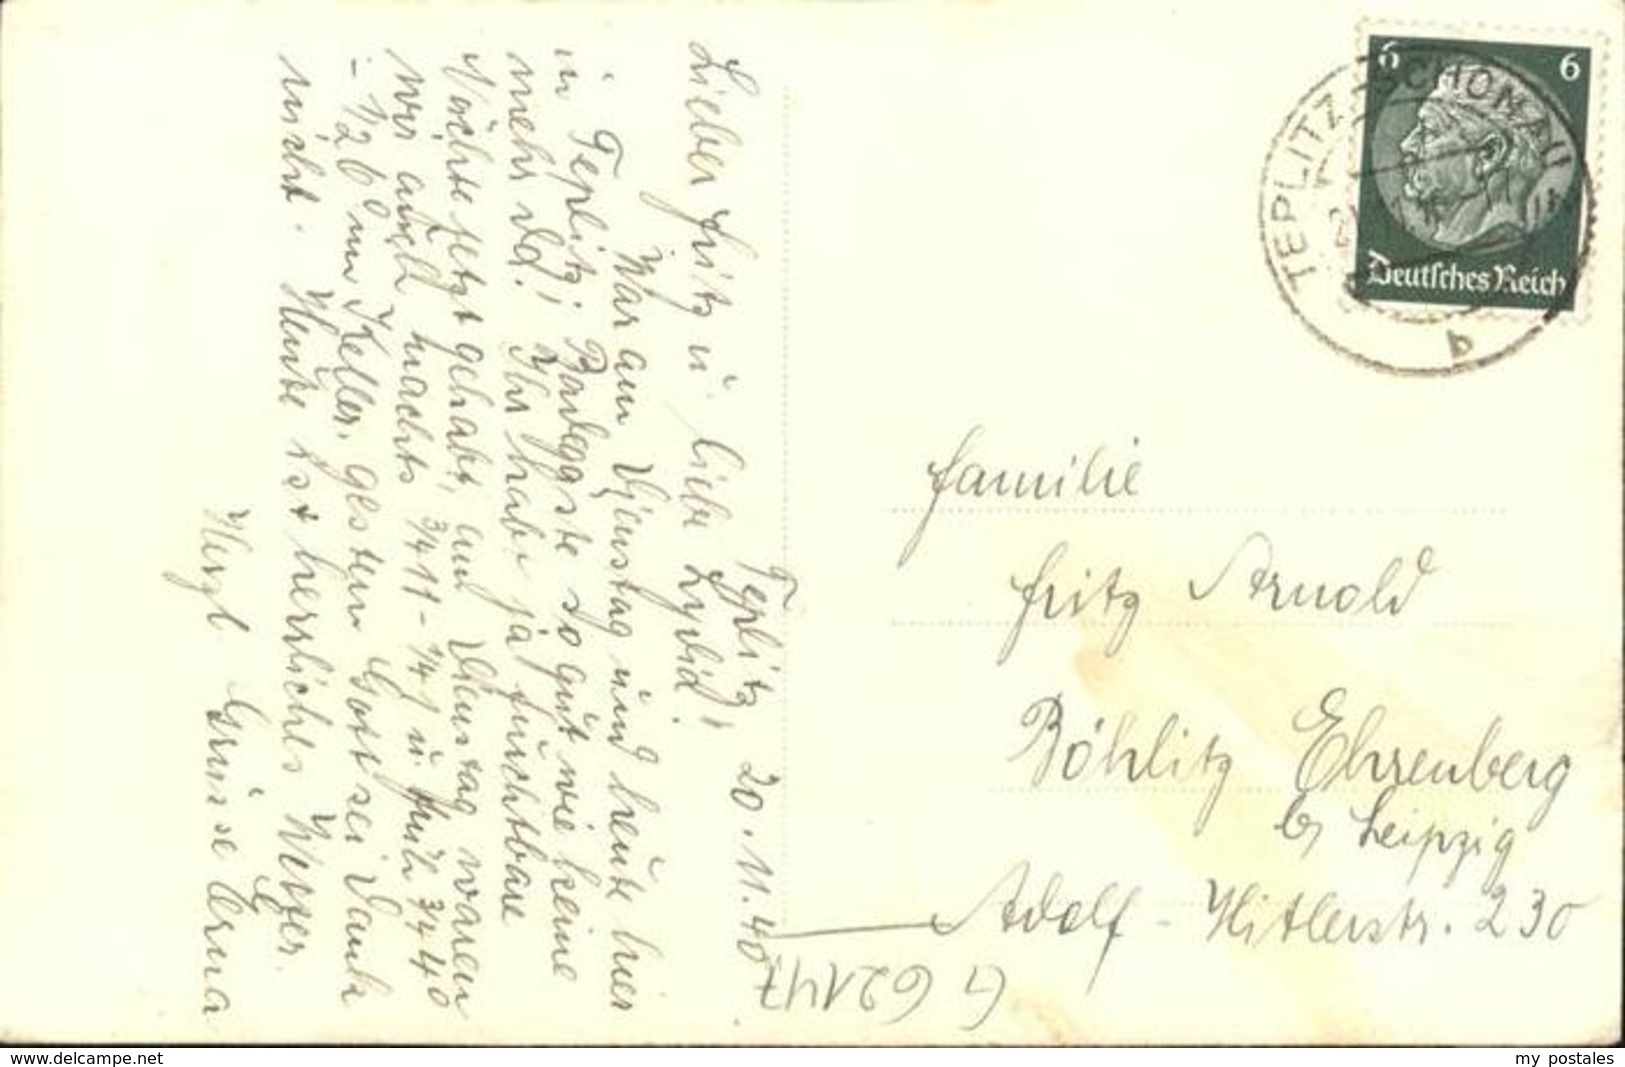 Teplitz, 20.11.40
Lieber Fritz u. liebe Lydia!
War am Dienstag und heute hier
in Teplitz; Badegäste so gut wie keine
mehr da! Ihr habt ja furchtbare
Nächte jetzt gehabt, am Dienstag waren
wir auch nachts 3/4 11 - 1/4 1 u. früh 3/4 4
- 1/2 6 im Keller, gestern Gott sei Dank
nicht. Heute ist herrliches Wetter.
Herzl. Grüsse Erna
6 6
Deutsches Reich
TEPLITZ-SCHÖNAU
b
Familie
Fritz Arnold
Böhlitz Ehrenberg
b/ Leipzig
Adolf-Hitlerstr. 230
G 62147
www.delcampe.net
my postales